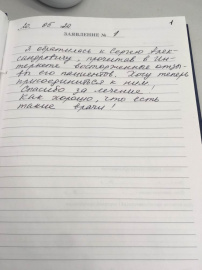 20 05 20
1
ЗАЯВЛЕНИЕ № 9
Я обратилась к Сергею Алек-
сандровичу, прочитав в ин-
тернете восторженные отзы-
вы его пациентов. Хочу теперь
присоединиться к ним.
Спасибо за лечение!
Как хорошо, что есть
такие врачи!